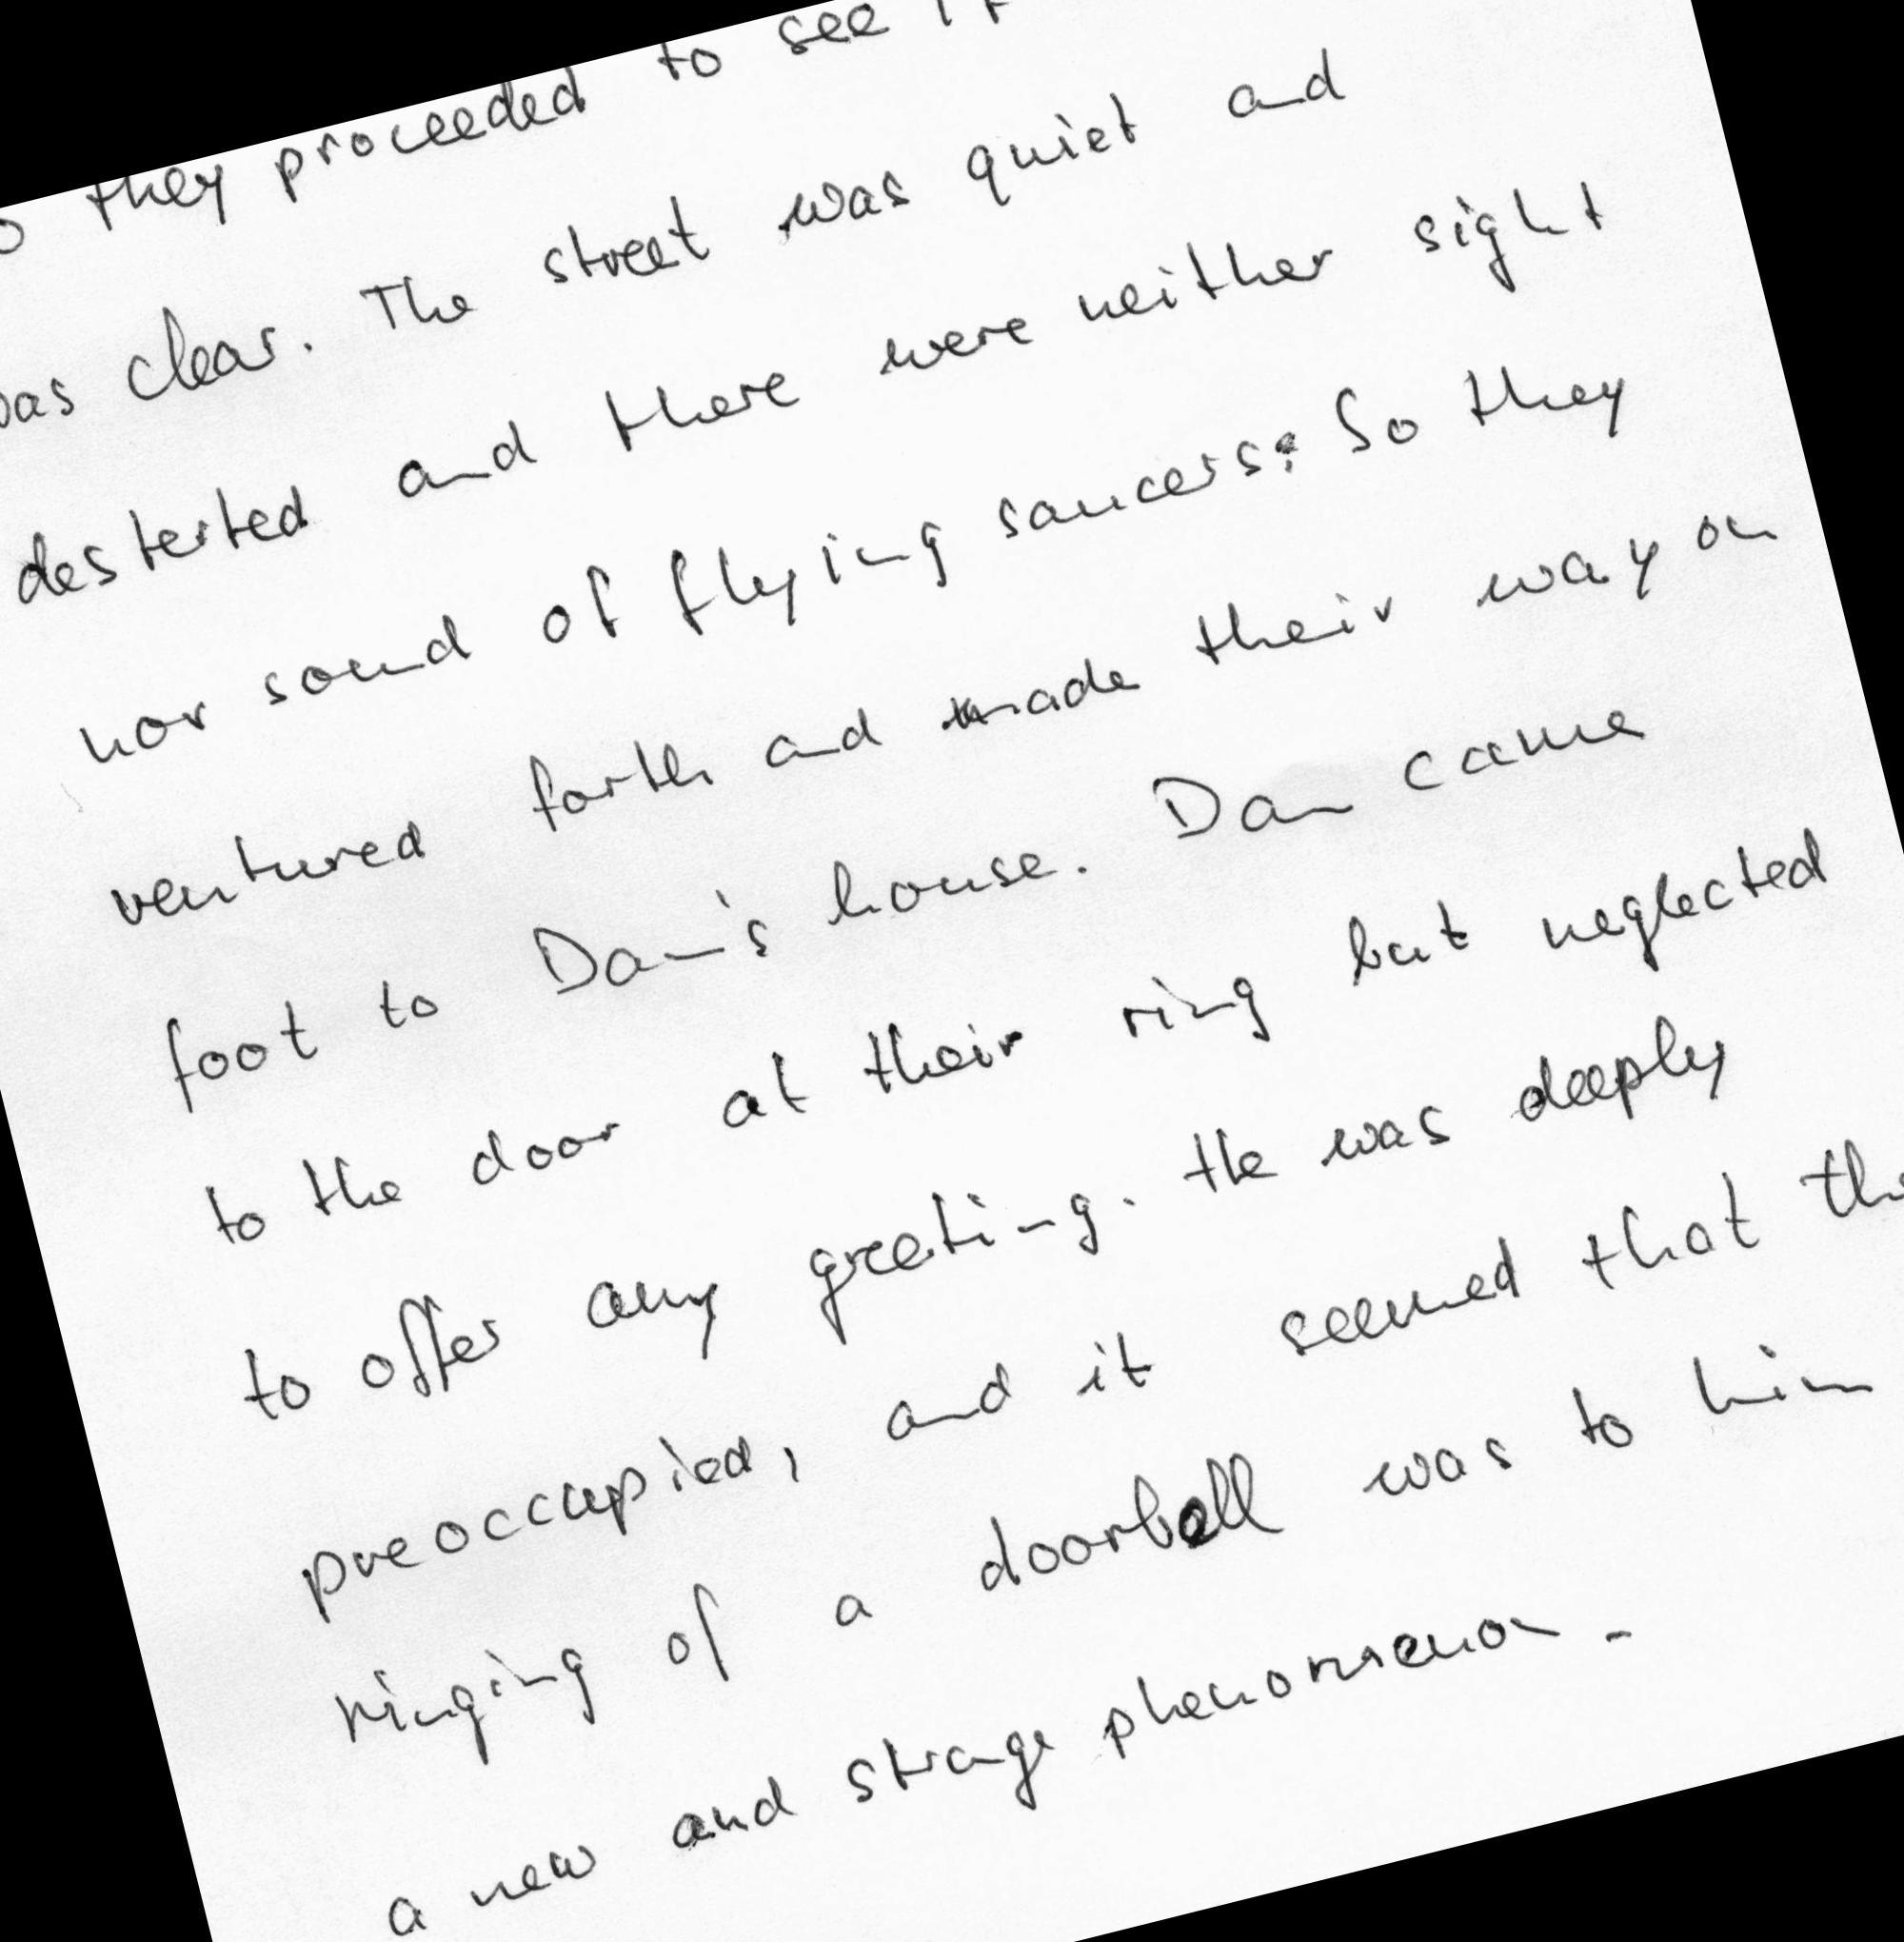 they proceeded to see if
was clear. The street was quiet and
desterted and there were neither sight
nor sound of flying saucers. So they
ventured forth and made their way on
foot to Dan's house. Dan came
to the door at their ring but neglected
to offer any greeting. He was deeply
preoccupied, and it seemed that the
ringing of a doorbell was to him
a new and strange phenomenon.